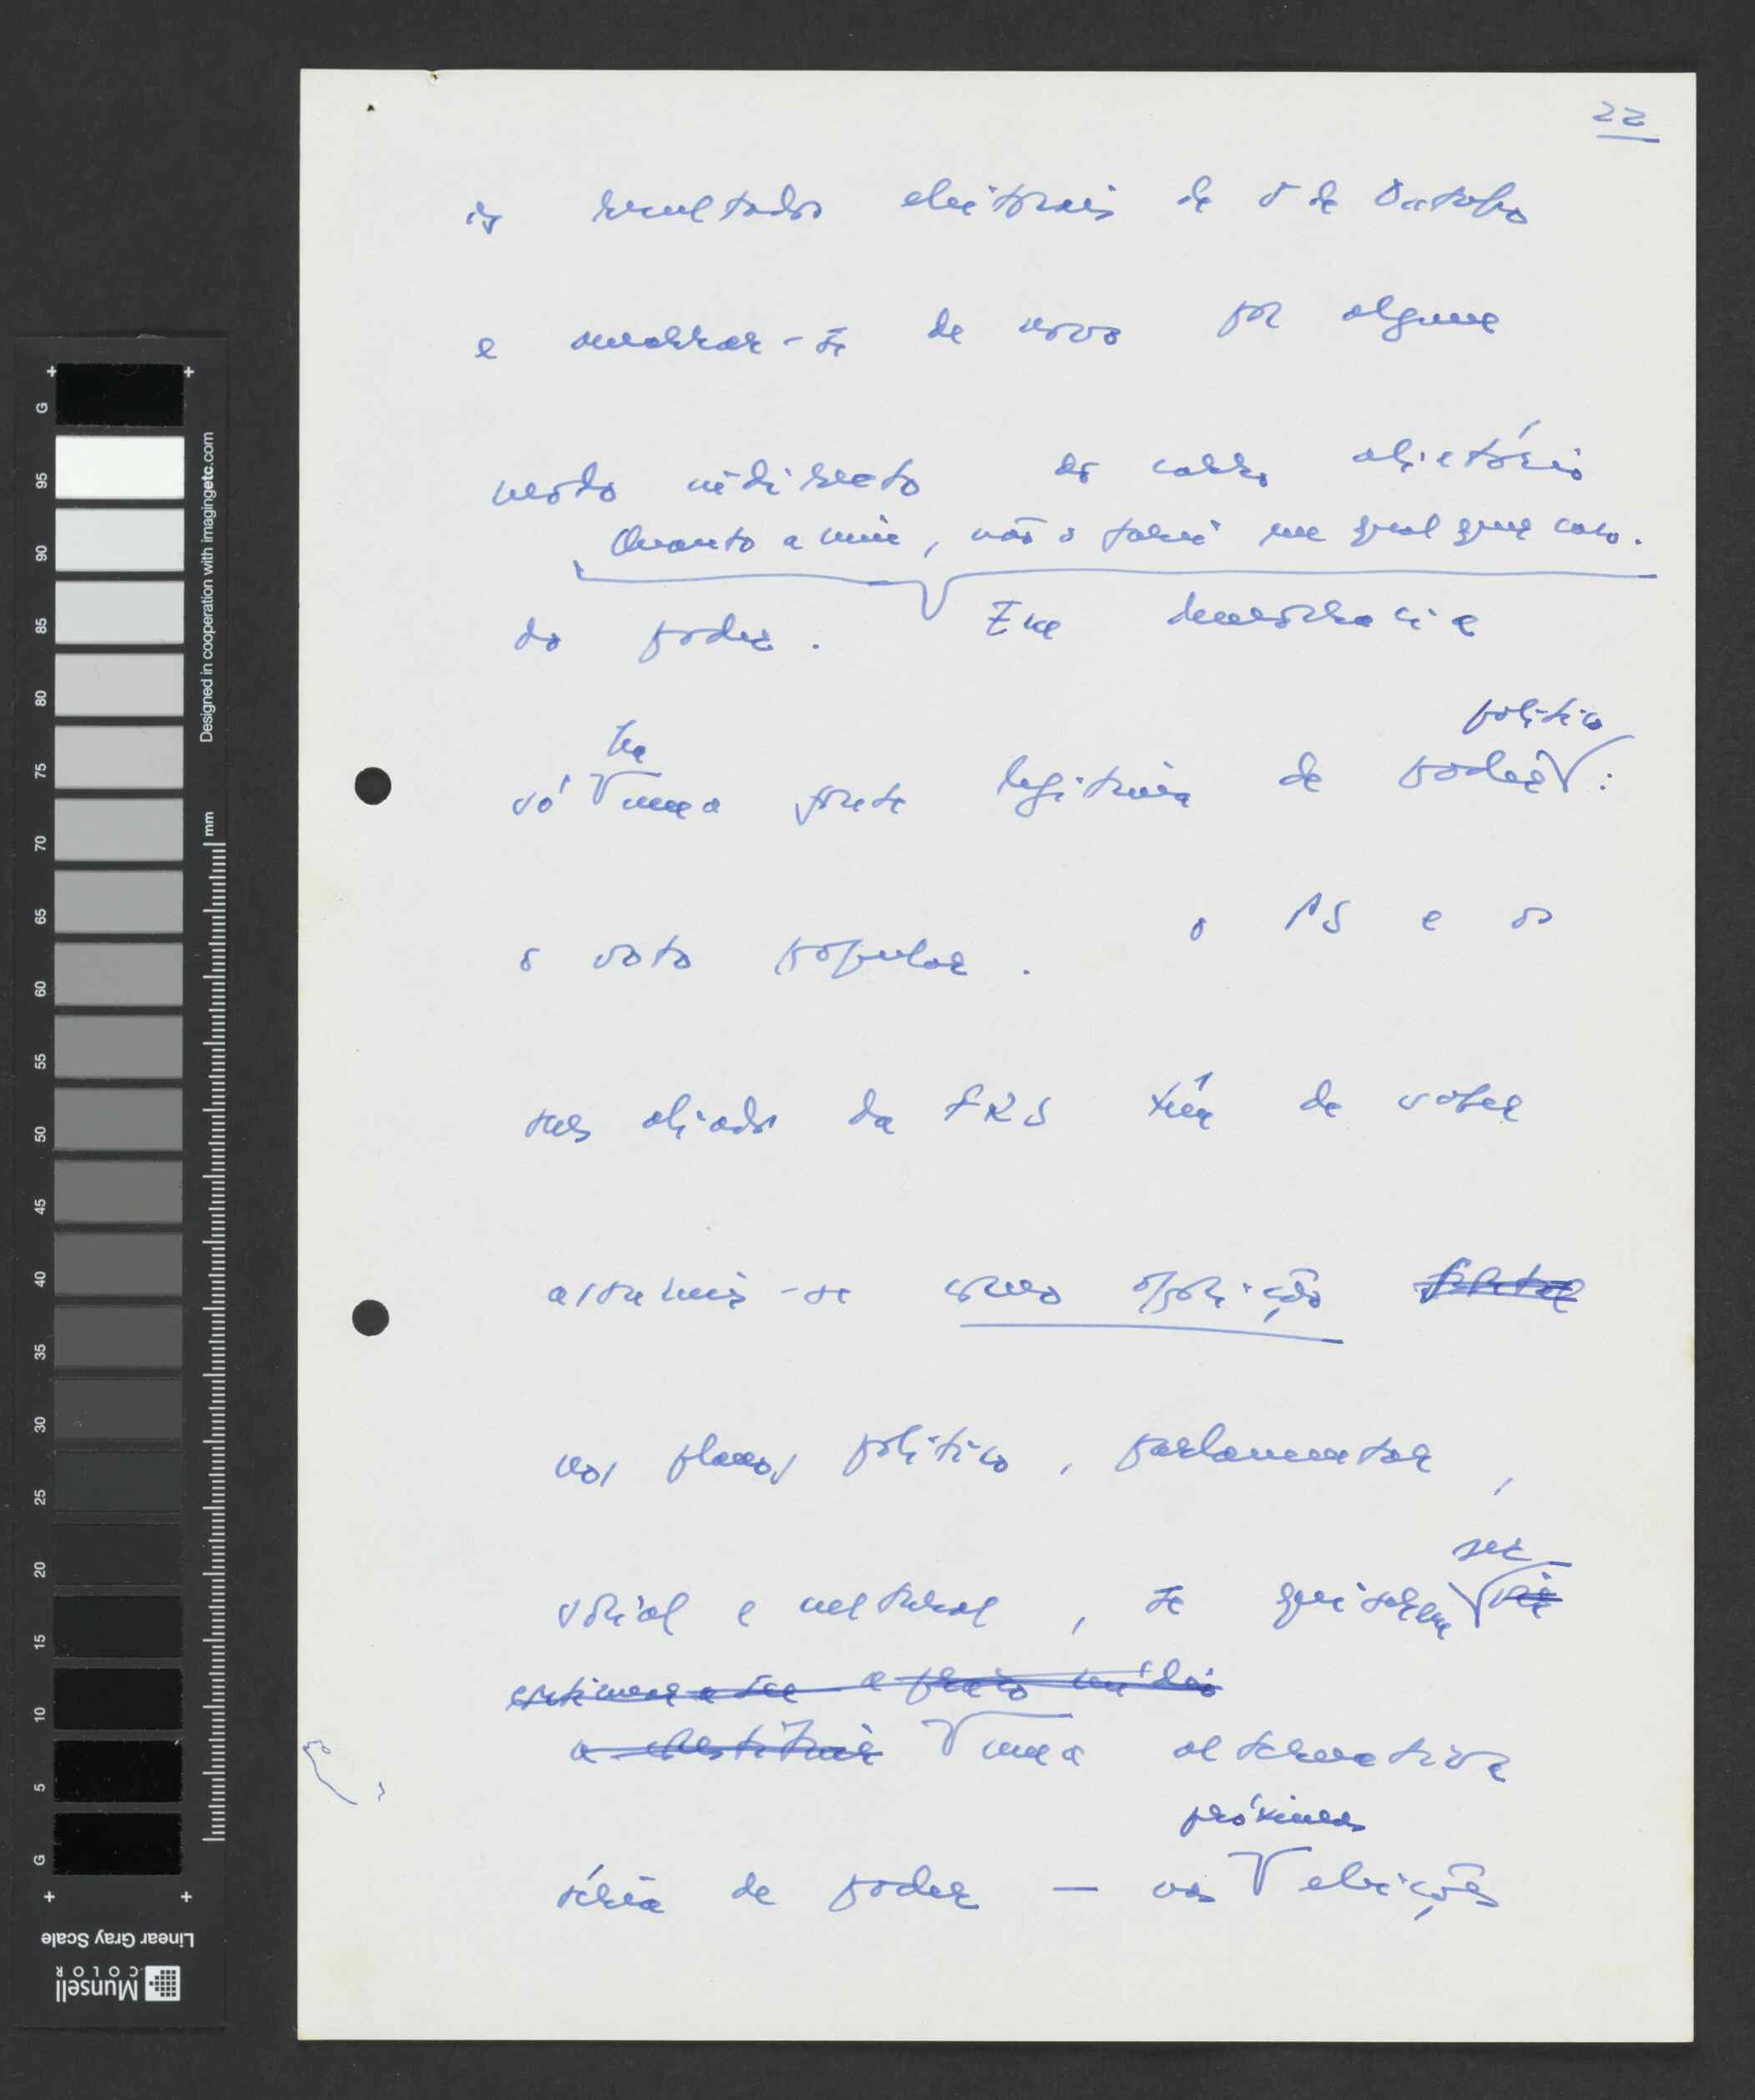 22
os resultados eleitorais de 5 de Outubro
e amarrar-se de novo por algum
modo indirecto ao carro aliatório
Quanto a mim, não o farei em qualquer caso.
do poder. Em democracia
há político
só uma fonte legítima de poder:
o voto popular. o PS e os
seus aliados da FRS têm de saber
assumir-se como oposição
nos planos político, parlamentar,
ser
social e cultural, se quiserem vir
continuar a ser a prazo médio
a constituir uma alternativa
próximas
séria de poder — nas eleições
Designed in cooperation with imagingetc.com
mm
G 95 90 85 80 75 70 65 60 55 50 45 40 35 30 25 20 15 10 5 G
Linear Gray Scale
Munsell
COLOR